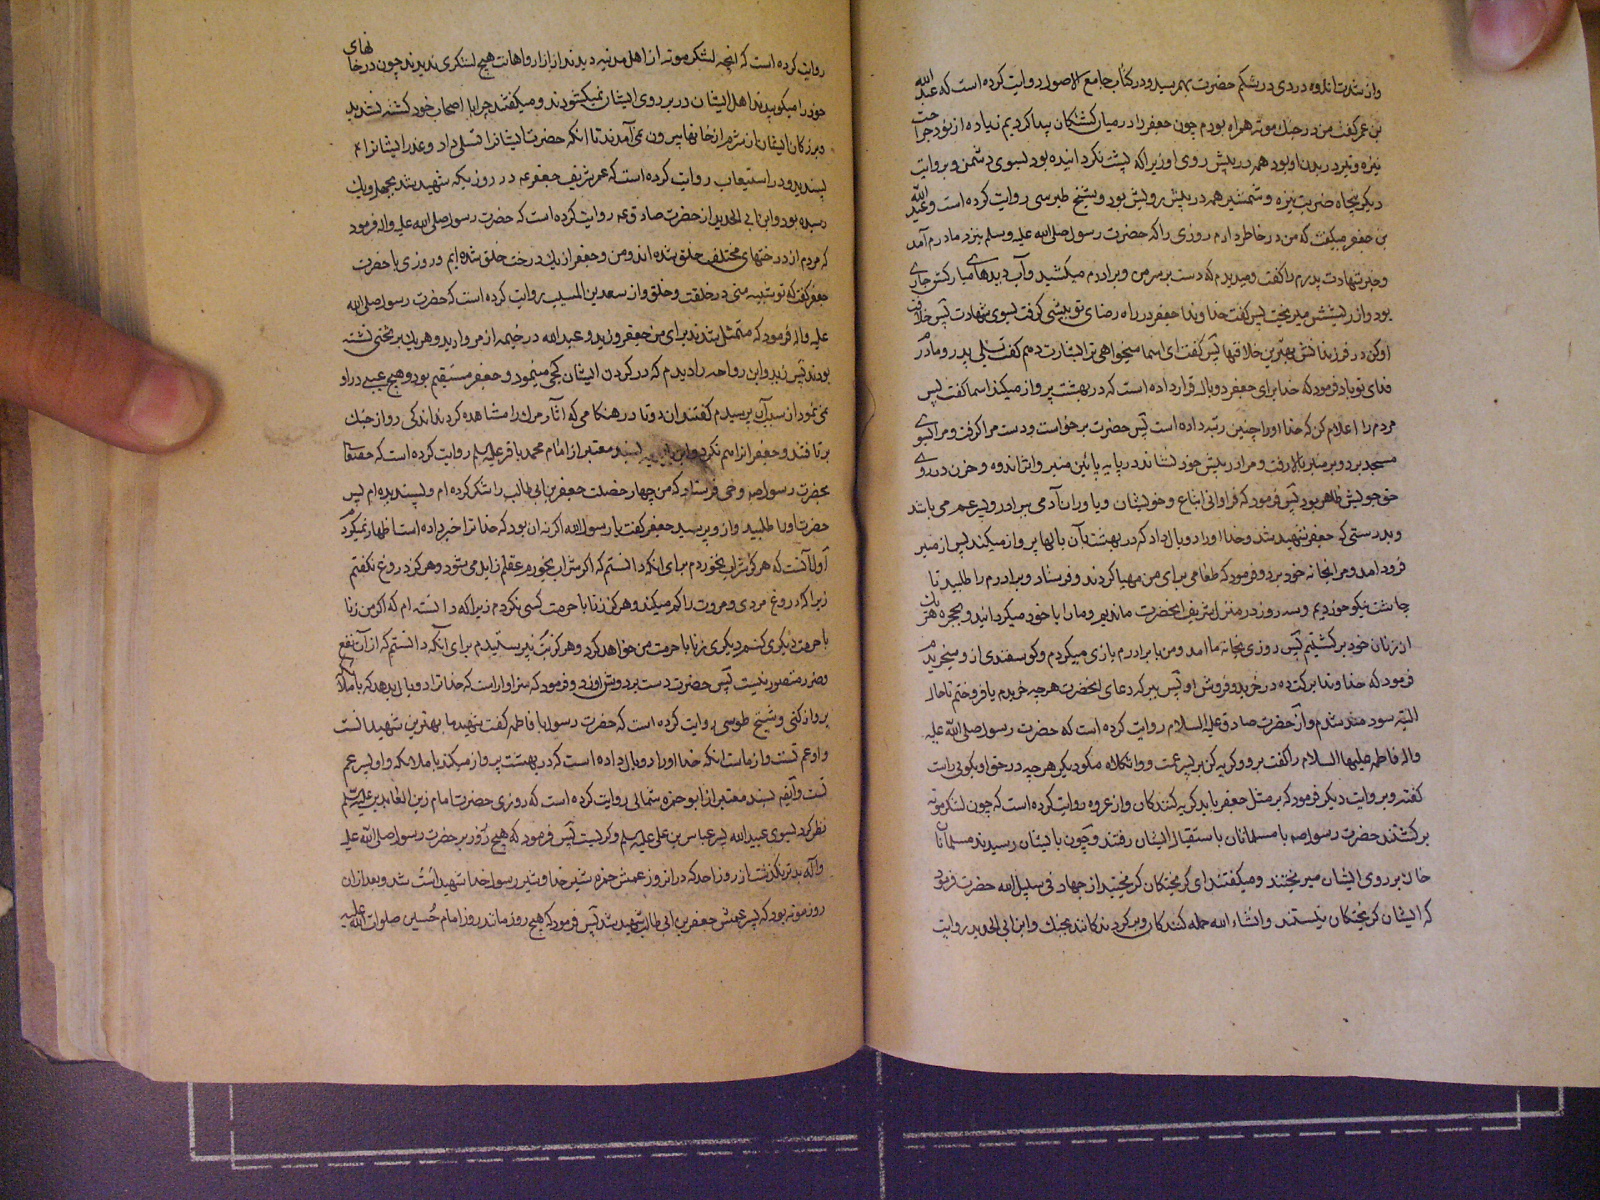 واز شدت اندوه دردی در شکم حضرت بهم رسید و در کتاب جامع الاصول روایت کرده است که عبد الله
بن عمر گفت من در جنک موته همراه بودم چون جعفر را در میان کشتکان پیدا کردیم زیاده از نود جراحت
نیزه و تیر در بدن او بود همه در پیش روی او زیرا که پشت نکردانیده بود بسوی دشمن و بروایت
دیکر پنجاه ضربت نیزه و شمشیر همه در پیش رویش بود و شیخ طبرسی روایت کرده است و عبد الله
بن جعفر میکفت که من در خاطر دارم روزی را که حضرت رسول صلی الله علیه وسلم بنزد مادرم آمد
و خبر شهادت پدرم را کفت و میدیدم که دست بر سر من و برادرم میکشید و آب دیدهای مبارکش جاری
بود و از ریشش میریخت پس کفت خداوندا جعفر در راه رضای تو پیشی کرفت بسوی شهادت پس خلافت
او کن در فرزندانش بهترین خلافتها پس کفت ای اسما میخواهی ترا بشارت دهم کفت بلی پدر و مادرم
فدای تو باد فرمود که خدا برای جعفر دو بال قرار داده است که در بهشت پرواز میکند اسما کفت پس
مردم را اعلام کن که خدا او را چنین رتبه داده است پس حضرت برخواست و دست مرا کرفت و مرا بسوی
مسجد برد و بر منبر بالا رفت و مرا در پیش خود نشاند در پایه پائین منبر و اثر اندوه و حزن در روی
حق جویش ظاهر بود پس فرمود که فراوانی اتباع و خویشان و یاوران آدمی ببرادر و پسر عم می باشد
و بدرستی که جعفر شهید شد و خدا او را دو بال داد که در بهشت بآن بالها پرواز میکند پس از منبر
فرود آمد و مرا بخانه خود برد و فرمود که طعامی برای من مهیا کردند و فرستاد و برادرم را طلبید تا
چاشت نیکو خوردیم و سه روز در منزل شریف انحضرت ماندیم و ما را با خود میکردانید و بحجره هر یک
از زنان خود برکشتیم پس روزی بخانه ما امد و من با برادرم بازی میکردم و کوسفندی از و میخریدم
فرمود که خداوندا برکت ده در خرید و فروش او پس ببرکه دعای انحضرت هر چه خریدم یا فروختم تا حال
البته سود مند شدم و از حضرت صادق علیه السلام روایت کرده است که حضرت رسول صلی الله علیه
واله فاطمه علیها السلام را کفت برو و کریه کن بر پسر عمت و واثکلاه مکو دیکر هر چه در حق او بکویی راست
کفته و بروایت دیکر فرمود که بر مثل جعفر باید کریه کنند کان و از عروه روایت کرده است که چون لشکر موته
برکشتند حضرت رسول صه با مسلمانان باستقبال ایشان رفتند و چون بایشان رسیدند مسلمانان
خاک بر روی ایشان میریختند و میکفتند ای کریختکان کریختید از جهاد فی سبیل الله حضرت فرمود
که ایشان کریختکان نیستند و انشاء الله حمله کنندکان و برکردندکانند بجنک و ابن ابی الحدید روایت
روایت کرده است که انچه لشکر موته از اهل مدینه دیدند از آزار و اهانت هیچ لشکری ندیدند چون در خانهای
خود را میکوبیدند اهل ایشان در بر روی ایشان نمیکشودند و میکفتند چرا با اصحاب خود کشته نشدید
و بزرکان ایشان از شرم از خانها بیرون نمی آمدند تا انکه حضرت ایشانرا تسلی داد و عذر ایشانرا
پسندید و در استیعاب روایت کرده است که عمر شریف جعفر عه در روزیکه شهید شد بچهل و یک
رسیده بود و ابن ابی الحدید از حضرت صادق عه روایت کرده است که حضرت رسول صلی الله علیه واله فرمود
که مردم از درختهای مختلف خلق شده اند و من و جعفر از یک درخت خلق شده ایم و روزی با حضرت
جعفر کفت که تو شبیه منی در خلقت و خلق و از سعد بن المسیب روایت کرده است که حضرت رسول صلی الله
علیه واله فرمود که متمثل شدند برای من جعفر و زید و عبد الله در خیمه از مروارید و هر یک بر تختی نشسته
بودند پس زید و ابن رواحه را دیدم که در کردن ایشان کجی مینمود و جعفر مستقیم بود و هیچ عیبی در او
نمی نمود از سبب آن پرسیدم کفتند ان دو تا در هنکامی که اثار مرک را مشاهده کردند اندکی رو از جنک
برتافتند و جعفر انرا هم نکرد و ابن بابویه بسند معتبر از امام محمد باقر علیه السلم روایت کرده است که حقتعالی
بحضرت رسول صه وحی فرستاد که من چهار خصلت جعفر بن ابی طالب را شکر کرده ام و پسندیده ام پس
حضرت او را طلبید و از و پرسید جعفر کفت یا رسول الله اکر نه ان بود که خدا ترا خبر داده است اظهار نمیکردم
اول آنست که هرکز شراب نخوردم برای انکه دانستم که اکر شراب بخورم عقلم زایل می شود و هرکز دروغ نکفتم
زیرا که دروغ مردی و مروت را کم میکند و هرکز زنا با حرمت کسی نکردم زیرا که دانسته ام که اکر من زنا
با حرمت دیکری کنم دیکری زنا با حرمت من خواهد کرد و هرکز بت نپرستیدم برای آنکه دانستم که از آن نفع
و ضرر متصور نیست پس حضرت دست بر دوش او زد و فرمود که سزاوار است که خدا ترا دو بال بدهد که با ملائکه
پرواز کنی و شیخ طوسی روایت کرده است که حضرت رسول با فاطمه کفت شهید ما بهترین شهیدانست
و او عم تست و از ماست انکه خدا او را دو بال داده است که در بهشت پرواز میکند با ملائکه و او پسر عم
تست و ایضه بسند معتبر از ابو حمزه ثمالی روایت کرده است که روزی حضرت امام زین العابدین علیه السلم
نظر کرد بسوی عبید الله پسر عباس بن علی علیه السلم و کریست پس فرمود که هیچ روز بر حضرت رسول صلی الله علیه
واله بدتر نکذشت از روز احد که در انروز عمش حمزه شیر خدا و شیر رسول خدا شهید شد و بعد از ان
روز موته بود که پسر عمش جعفر بن ابی طالب شهید شد پس فرمود که هیچ روز مانند روز امام حسین صلوات الله علیه